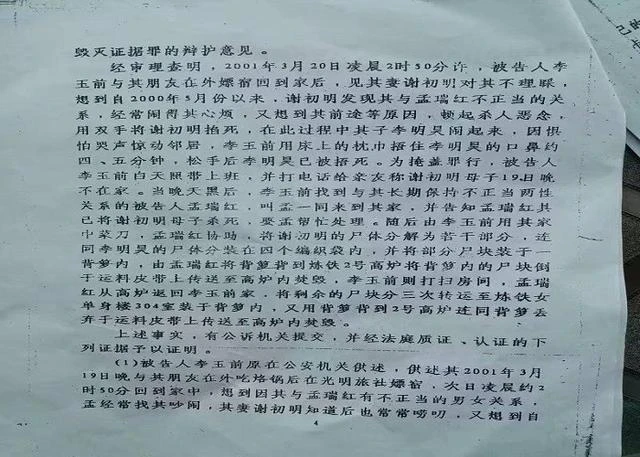 毁灭证据罪的辩护意见。
经审理查明，2001年3月20日凌晨2时50分许，被告人李
玉前与其朋友在外嫖宿回到家后，见其妻谢初明对其不理睬，
想到自2000年5月份以来，谢初明发现其与孟瑞红不正当的关
系，经常闹得其心烦，又想到其前途等原因，顿起杀人恶念，
用双手将谢初明掐死，在此过程中其子李明昊闹起来，因惧
怕哭声惊动邻居，李玉前用床上的枕巾捂住李明昊的口鼻约
四、五分钟，松手后李明昊已被捂死。为掩盖罪行，被告人
李玉前白天照常上班，并打电话给亲友称谢初明母子19日晚
不在家。当晚天黑后，李玉前找到与其长期保持不正当两性
关系的被告人孟瑞红，叫孟一同来到其家，并告知孟瑞红其
已将谢初明母子杀死，要孟帮忙处理。随后由李玉前用其家
中菜刀，孟瑞红协助，将谢初明的尸体分解为若干部分，连
同李明昊的尸体分装在四个编织袋内，并将部分尸块装于一
背箩内，由孟瑞红将背箩背到炼铁2号高炉将背箩内的尸块倒
于运料皮带上传送至高炉内焚毁，李玉前则打扫房间，孟瑞
红从高炉返回李玉前家，将剩余的尸块分三次转运至炼铁女
单身楼304室装于背箩内，又用背箩背到2号高炉连同背箩丢
弃于运料皮带上传送至高炉内焚毁。
上述事实，有公诉机关提交，并经法庭质证、认证的下
列证据予以证明。
(1)被告人李玉前原在公安机关供述，供述其2001年3月
19日晚与其朋友在外吃烙锅后在光明旅社嫖宿，次日凌晨约2
时50分回到家中，想到因其与孟瑞红有不正当的男女关系，
孟经常找其吵闹，其妻谢初明知道后也常常唠叨，又想到自
4